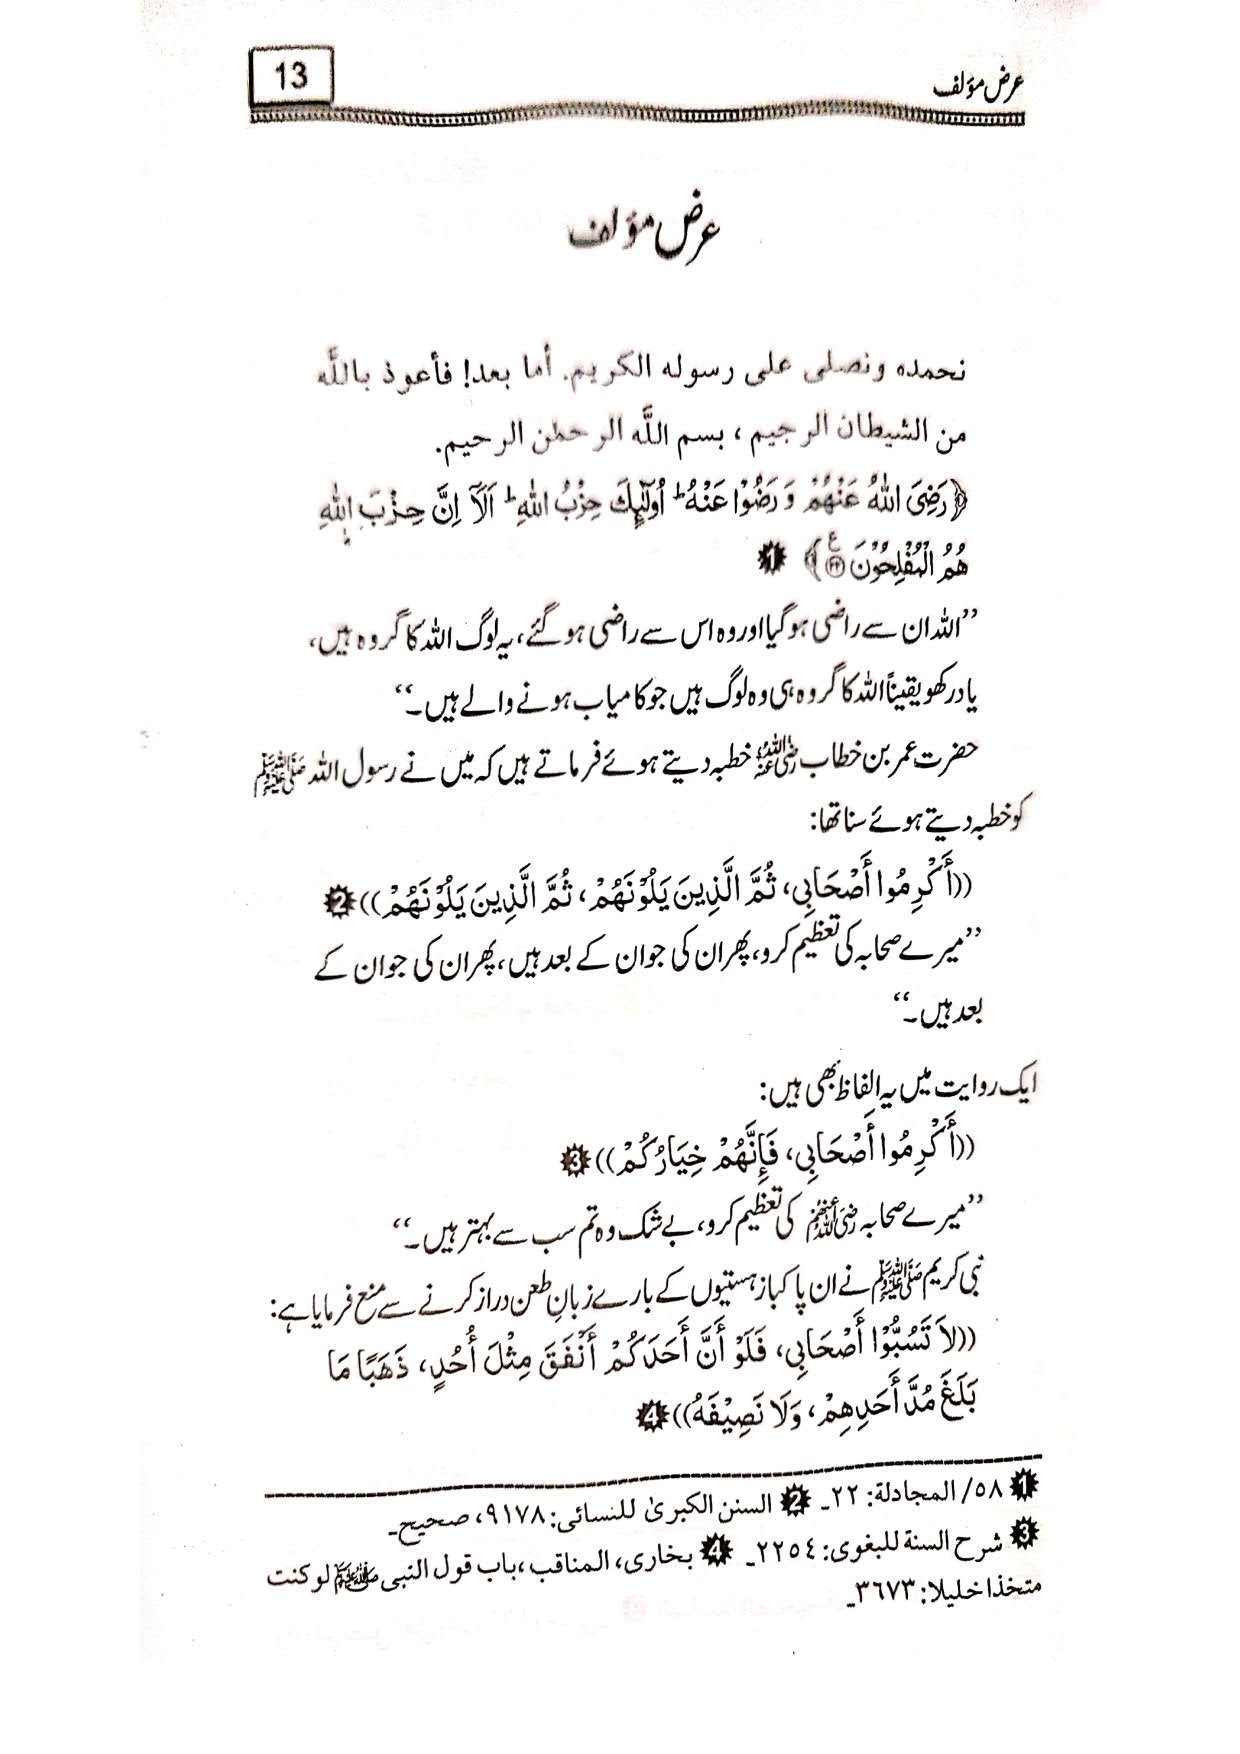 عرض مؤلف
13
عرض مؤلف
نحمده ونصلی علی رسوله الكريم. أما بعد! فأعوذ باللَّه
من الشيطان الرجيم ، بسم اللَّه الرحمٰن الرحيم.
﴿رَضِيَ اللّٰهُ عَنْهُمْ وَ رَضُوْا عَنْهُ ؕ اُولٰٓىِٕكَ حِزْبُ اللّٰهِ ؕ اَلَاۤ اِنَّ حِزْبَ اللّٰهِ
هُمُ الْمُفْلِحُوْنَ ۟۲۲﴾ ❶
’’اللہ ان سے راضی ہو گیا اور وہ اس سے راضی ہو گئے، یہ لوگ اللہ کا گروہ ہیں،
یاد رکھو یقیناً اللہ کا گروہ ہی وہ لوگ ہیں جو کامیاب ہونے والے ہیں۔‘‘
حضرت عمر بن خطاب رضی اللہ عنہ خطبہ دیتے ہوئے فرماتے ہیں کہ میں نے رسول اللہ ﷺ
کو خطبہ دیتے ہوئے سنا تھا:
((أَكْرِمُوا أَصْحَابِي، ثُمَّ الَّذِينَ يَلُوْنَهُمْ، ثُمَّ الَّذِينَ يَلُوْنَهُمْ)) ❷
’’میرے صحابہ کی تعظیم کرو، پھر ان کی جو ان کے بعد ہیں، پھر ان کی جو ان کے
بعد ہیں۔‘‘
ایک روایت میں یہ الفاظ بھی ہیں:
((أَكْرِمُوا أَصْحَابِي، فَإِنَّهُمْ خِيَارُكُمْ)) ❸
’’میرے صحابہ رضی اللہ عنہم کی تعظیم کرو، بے شک وہ تم سب سے بہتر ہیں۔‘‘
نبی کریم ﷺ نے ان پاکباز ہستیوں کے بارے زبانِ طعن دراز کرنے سے منع فرمایا ہے:
((لاَ تَسُبُّوْا أَصْحَابِي، فَلَوْ أَنَّ أَحَدَكُمْ أَنْفَقَ مِثْلَ أُحُدٍ، ذَهَبًا مَا
بَلَغَ مُدَّ أَحَدِهِمْ، وَلَا نَصِيْفَهُ)) ❹
❶ ٥٨/ المجادلة: ٢٢۔ ❷ السنن الكبریٰ للنسائی: ٩١٧٨، صحيح۔
❸ شرح السنة للبغوی: ٢٢٥٤۔ ❹ بخاری، المناقب، باب قول النبی ﷺ لو كنت
متخذا خليلا: ٣٦٧٣۔